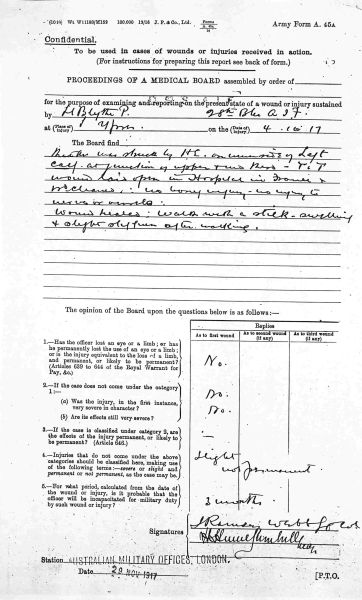 (2078) Wt W11180/M2159 100,000 12/16 J. P. & Co., Ltd. Forms
Army Form A. 45A
Confidential.
To be used in cases of wounds or injuries received in action.
(For instructions for preparing this report see back of form.)
PROCEEDINGS OF A MEDICAL BOARD assembled by order of
for the purpose of examining and reporting on the present state of a wound or injury sustained
by Lt Blythe P. 28th Btn A.I.F.
at (Place of Injury) Ypres on the (Date of Injury) 4. 10. 17
The Board find
that he was struck by H.E. on inner side of Left
calf at junction of upper & mid third – T. T
wound laid open in Hospital in France &
cleaned : no bony injury – no injury to
nerves or vessels.
Wound healed : Walks with a stick – swelling
& slight stiffness after walking.
The opinion of the Board upon the questions below is as follows:—
Replies
As to first wound
As to second wound (if any)
As to third wound (if any)
1.—Has the officer lost an eye or a limb; or has he permanently lost the use of an eye or a limb; or is the injury equivalent to the loss of a limb, and permanent, or likely to be permanent? (Articles 639 to 644 of the Royal Warrant for Pay, &c.)
No.
2.—If the case does not come under the category 1:—
(a) Was the injury, in the first instance, very severe in character?
No.
(b) Are its effects still very severe?
No.
3.—If the case is classified under category 2, are the effects of the injury permanent, or likely to be permanent? (Article 646.)
–
4.—Injuries that do not come under the above categories should be classified here, making use of the following terms:—severe or slight and permanent or not permanent, as the case may be.
slight
not permanent
5.—For what period, calculated from the date of the wound or injury, is it probable that the officer will be incapacitated for military duty by such wound or injury?
3 months
Signatures
J Ramsay Webb
Station AUSTRALIAN MILITARY OFFICES, LONDON.
Date 29 NOV 1917
[P.T.O.